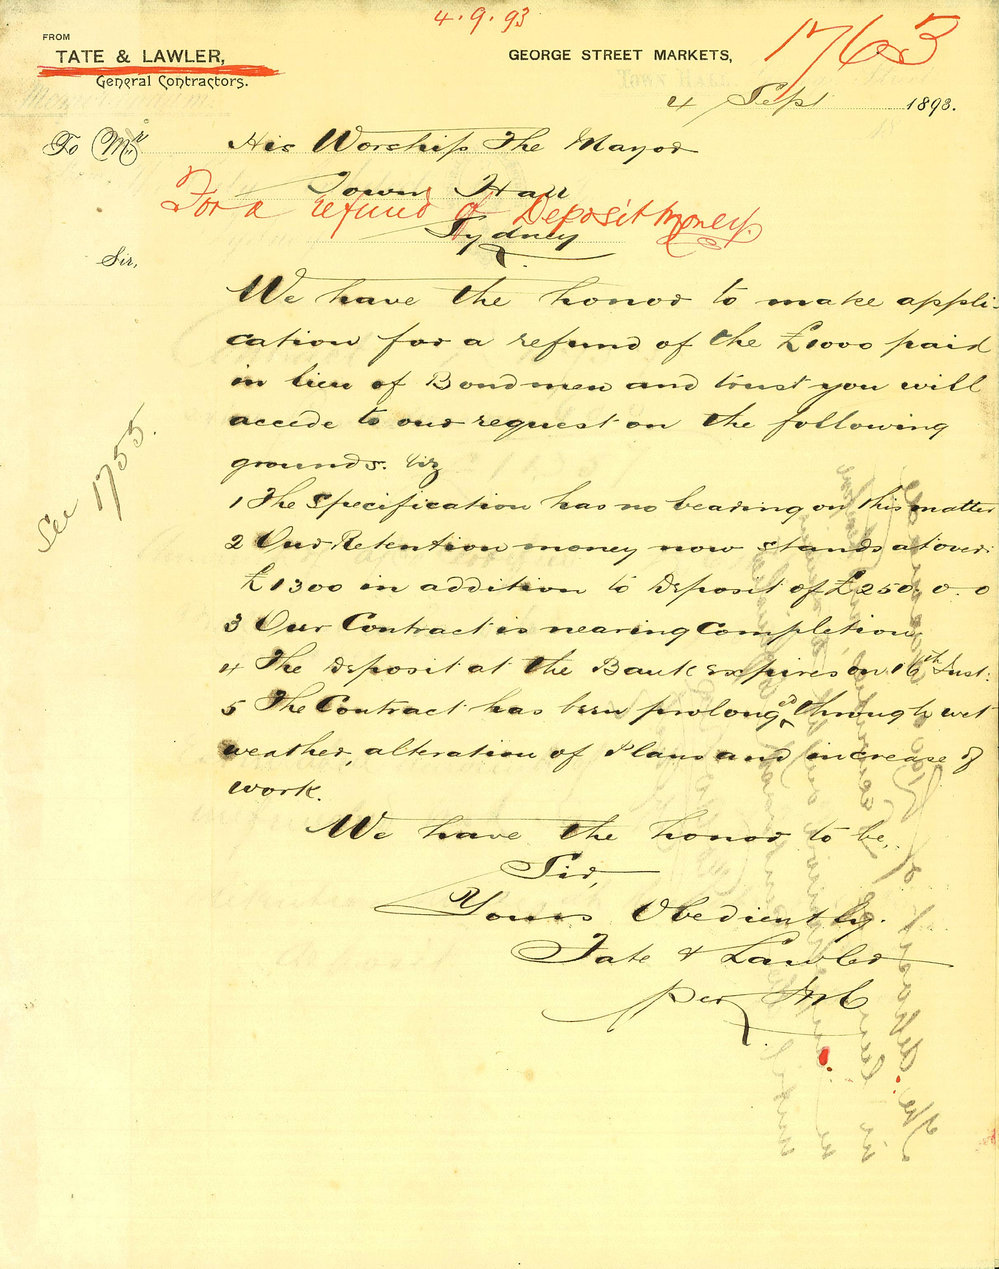 4.9.93
1763
FROM
TATE & LAWLER,
General Contractors.
GEORGE STREET MARKETS,
4 Sept 1893.
To Mr His Worship The Mayor
Town Hall
For a refund of Deposit money.
Sydney
Sir,
We have the honor to make appli-
cation for a refund of the £1000 paid
in lieu of Bondmen and trust you will
accede to our request on the following
grounds. viz
See 1755.
1 The Specification has no bearing on this matter
2 Our Retention money now stands at over
£1300 in addition to Deposit of £250.0.0
3 Our Contract is nearing Completion
4 The Deposit at the Bank expires on 16th Inst:
5 The Contract has been prolonged through wet
weather, alteration of Plans and increase of
work.
We have the honor to be,
Sir,
Yours Obediently.
Tate & Lawler
per